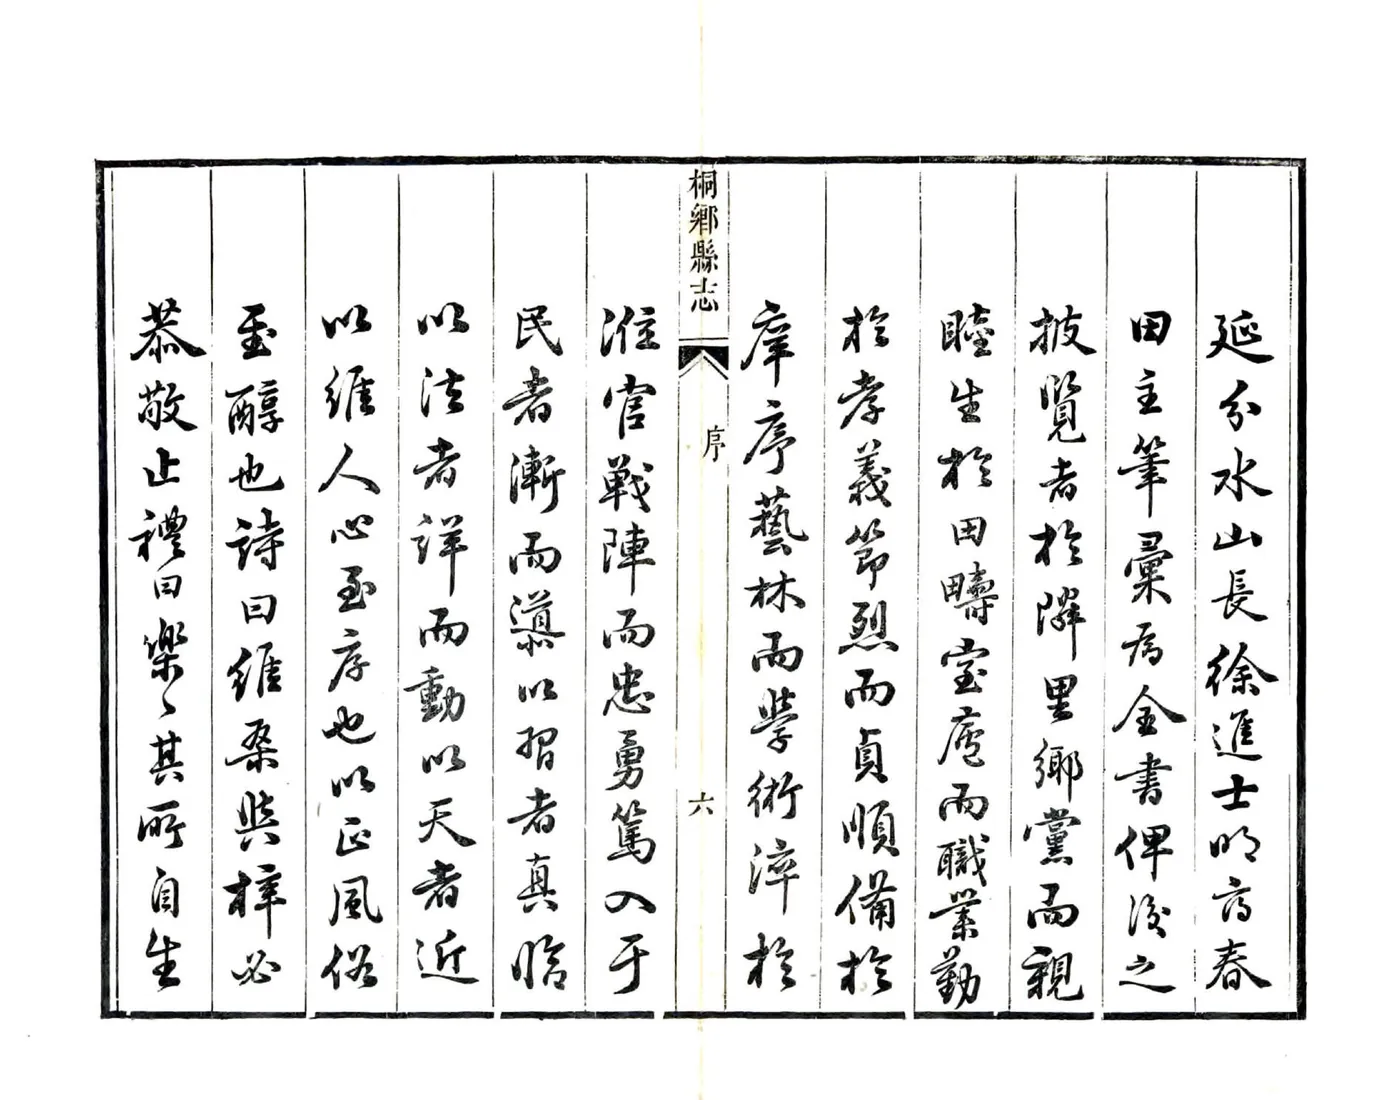 延分水山長徐進士明府春
田主筆彙為全書俾後之
披覽者於隣里鄉黨而親
睦生於田疇室廬而職業勤
於孝義節烈而貞順備於
庠序藝林而學術淬於
桐鄉縣志
序
六
淮官戰陣而忠勇篤入于
民者漸而導以習者真臨
以法者詳而動以天者近
以維人心至厚也以正風俗
至醇也詩曰維桑與梓必
恭敬止禮曰樂樂其所自生